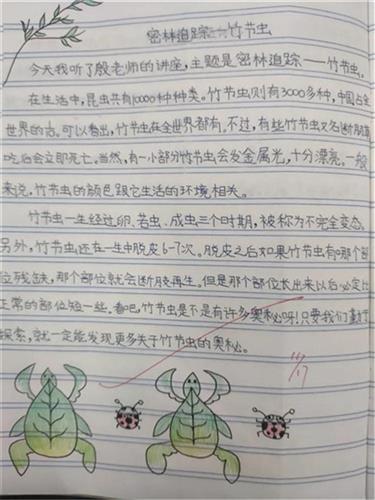 密林追踪——竹节虫
今天我听了殷老师的讲座，主题是密林追踪——竹节虫。
在生活中，昆虫共有10000种种类。竹节虫则有3000多种，中国占全
世界的 可以看出，竹节虫在全世界都有。不过，有些竹节虫又名断肠草
吃后会立即死亡。当然，有一小部分竹节虫会发金属光，十分漂亮。一般
来说，竹节虫的颜色跟它生活的环境相关。
竹节虫一生经过卵、若虫、成虫三个时期，被称为不完全变态。
另外，竹节虫还在一生中脱皮6-7次。脱皮之后如果竹节虫有哪个部
位残缺，那个部位就会断肢再生。但是那个部位长出来以后必定比
正常的部位短一些。看吧，竹节虫是不是有许多奥秘呀！只要我们勤于
探索，就一定能发现更多关于竹节虫的奥秘。